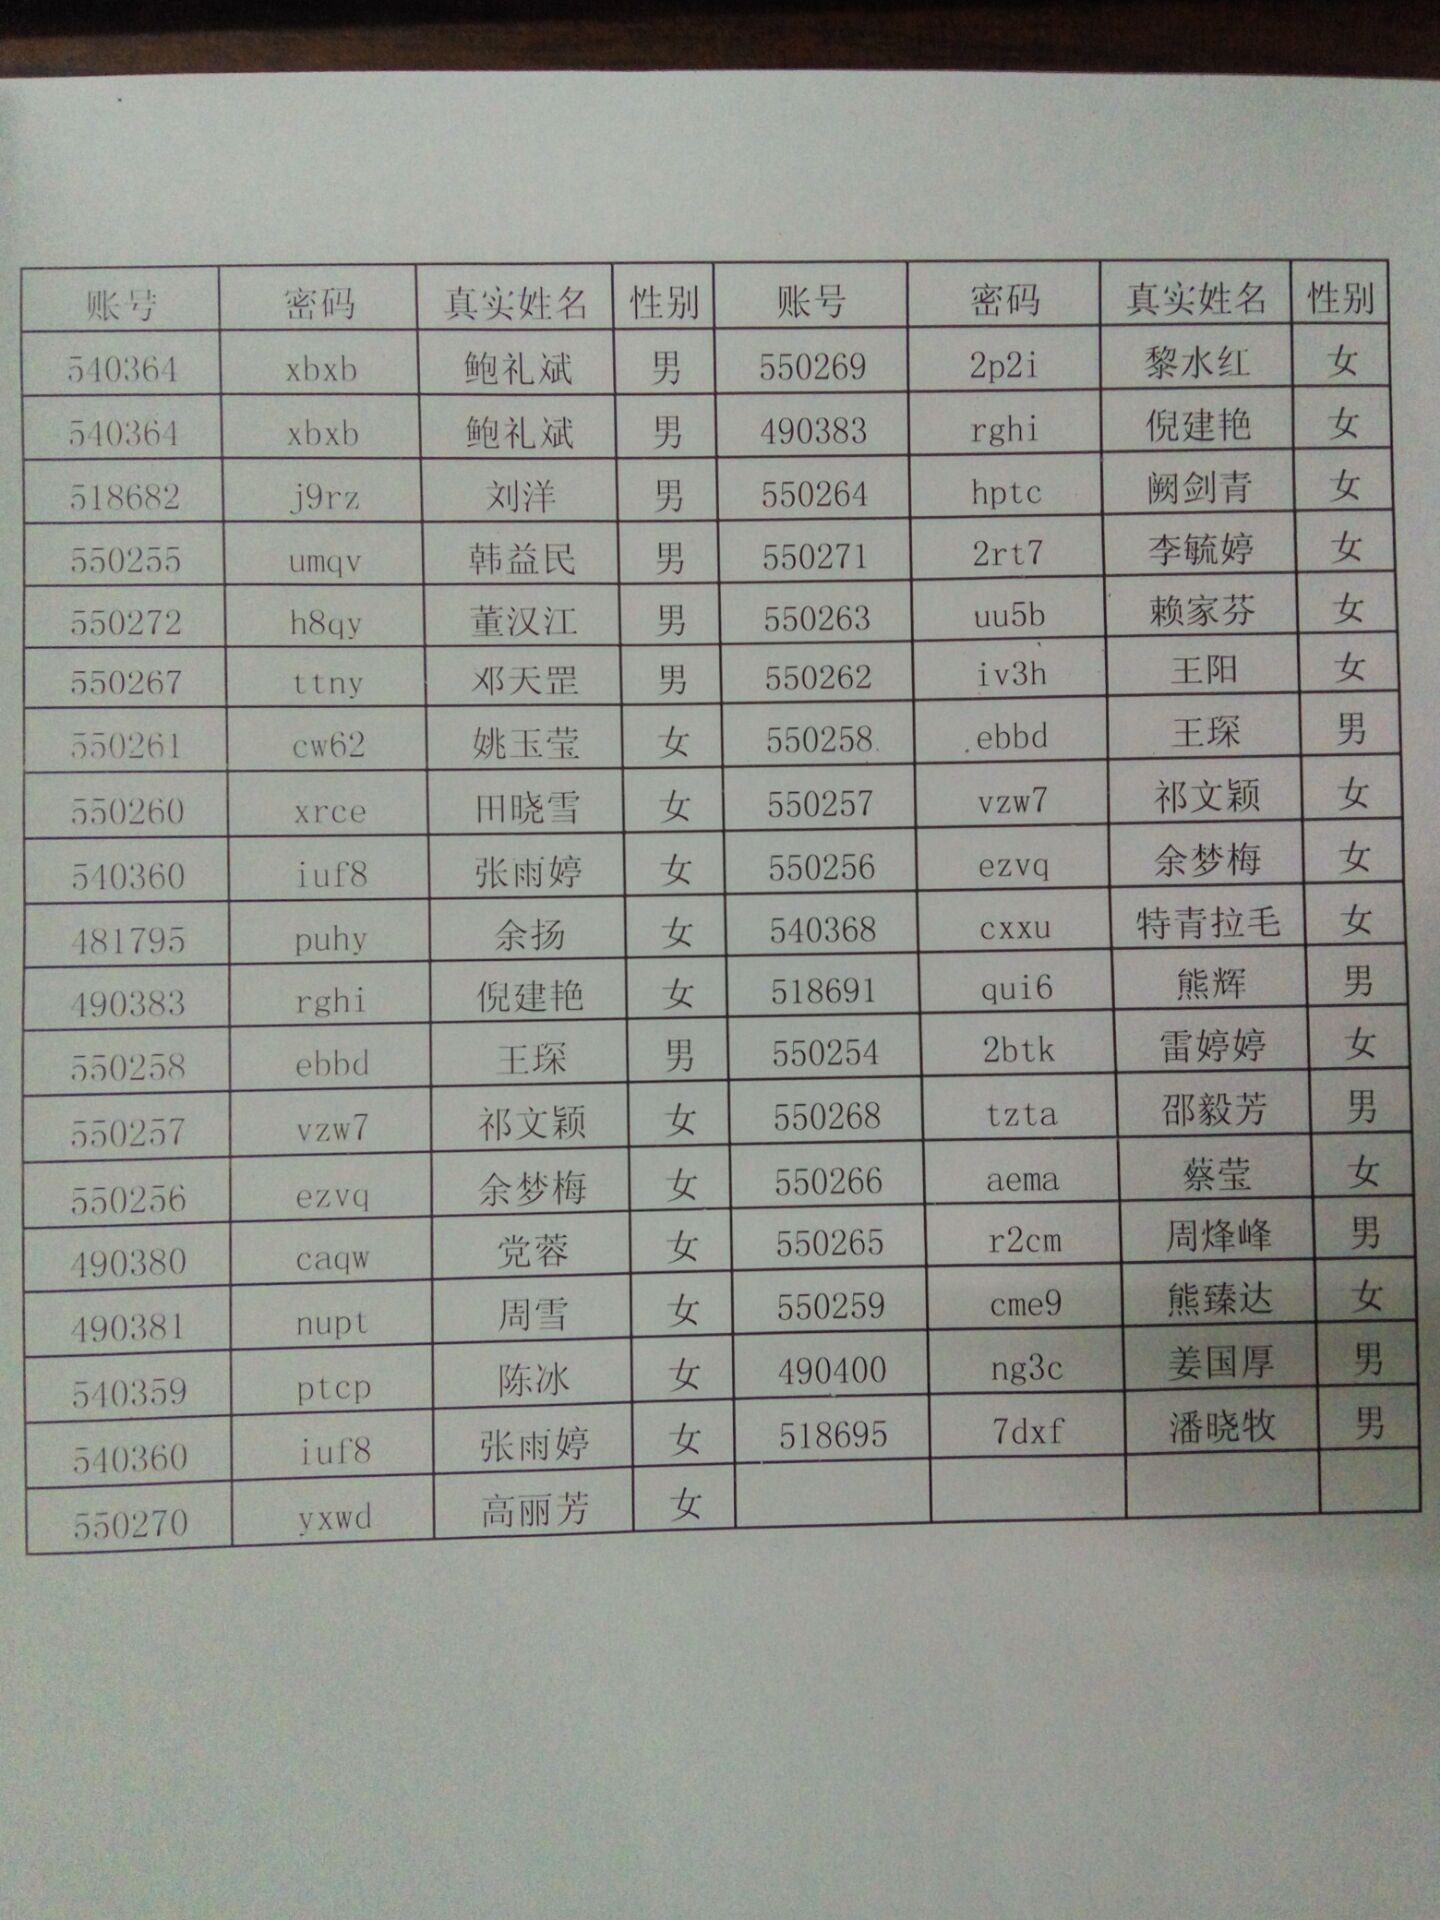 账号 密码 真实姓名 性别 账号 密码 真实姓名 性别
540364 xbxb 鲍礼斌 男 550269 2p2i 黎水红 女
540364 xbxb 鲍礼斌 男 490383 rghi 倪建艳 女
518682 j9rz 刘洋 男 550264 hptc 阙剑青 女
550255 umqv 韩益民 男 550271 2rt7 李毓婷 女
550272 h8qy 董汉江 男 550263 uu5b 赖家芬 女
550267 ttny 邓天罡 男 550262 iv3h 王阳 女
550261 cw62 姚玉莹 女 550258 ebbd 王琛 男
550260 xrce 田晓雪 女 550257 vzw7 祁文颖 女
540360 iuf8 张雨婷 女 550256 ezvq 余梦梅 女
481795 puhy 余扬 女 540368 cxxu 特青拉毛 女
490383 rghi 倪建艳 女 518691 qui6 熊辉 男
550258 ebbd 王琛 男 550254 2btk 雷婷婷 女
550257 vzw7 祁文颖 女 550268 tzta 邵毅芳 男
550256 ezvq 余梦梅 女 550266 aema 蔡莹 女
490380 caqw 党蓉 女 550265 r2cm 周烽峰 男
490381 nupt 周雪 女 550259 cme9 熊臻达 女
540359 ptcp 陈冰 女 490400 ng3c 姜国厚 男
540360 iuf8 张雨婷 女 518695 7dxf 潘晓牧 男
550270 yxwd 高丽芳 女